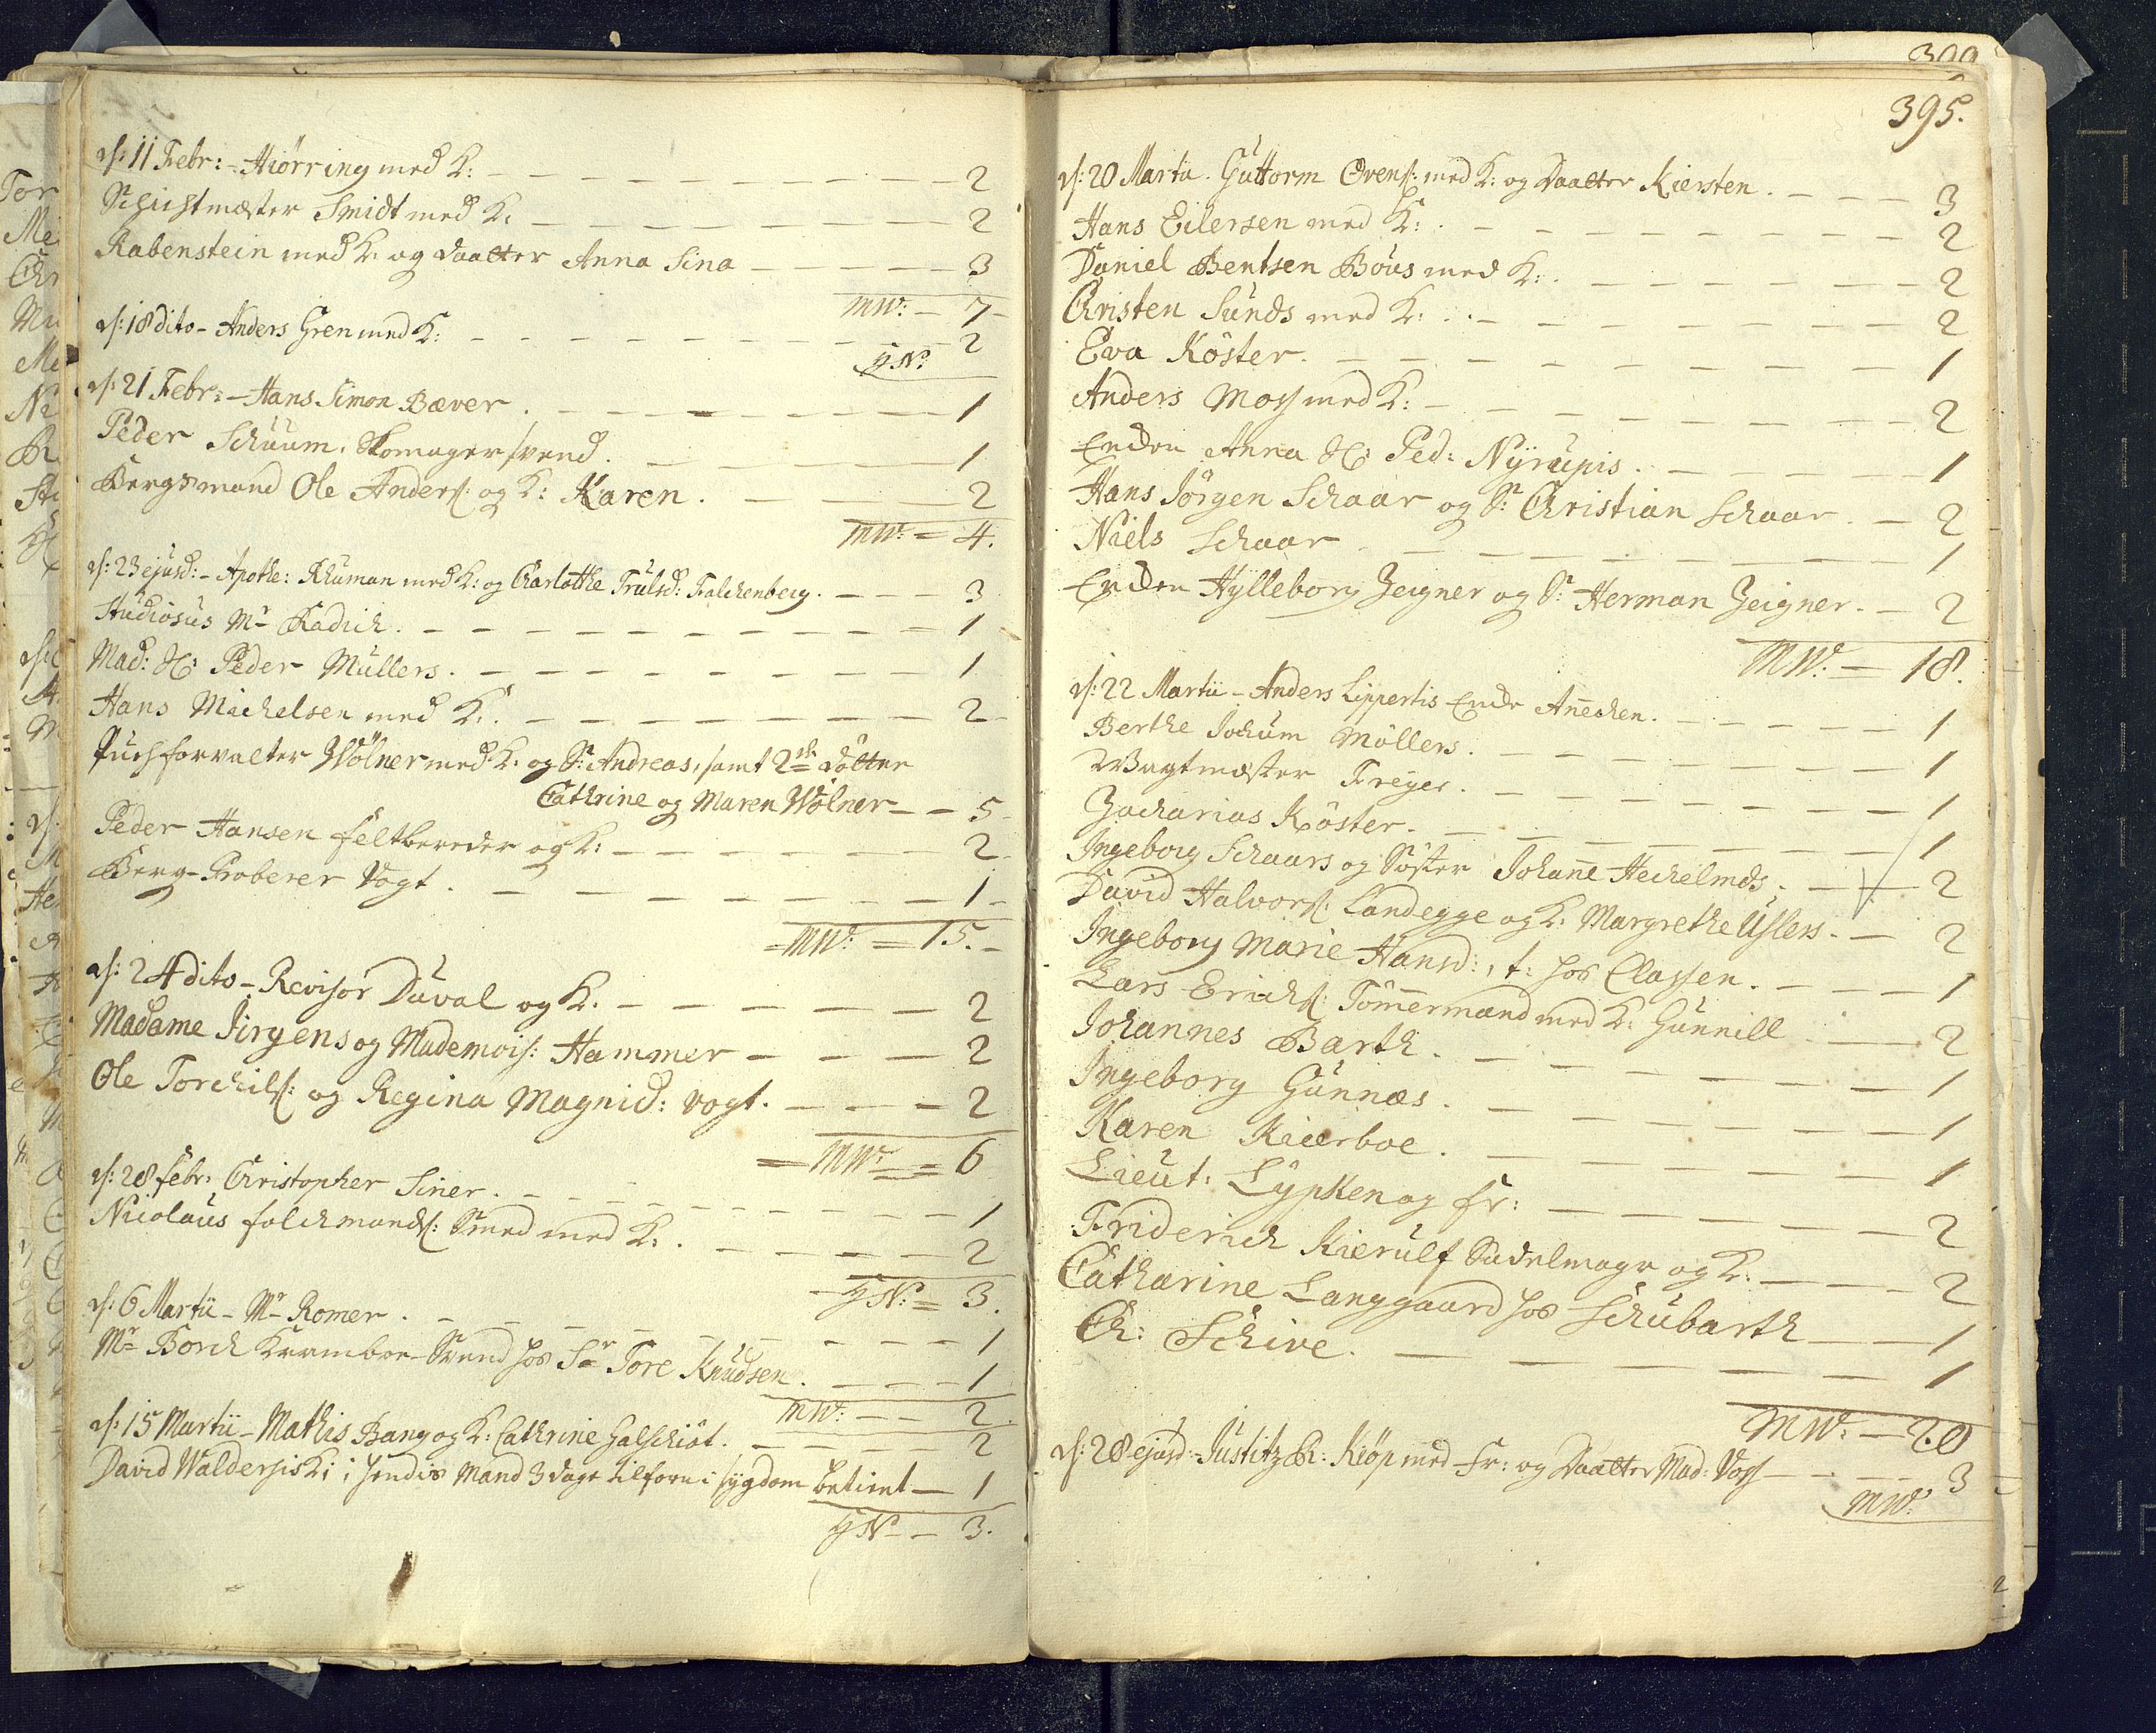 d: 11 Febr: - Hiörring med K: 2
Schichtmester Smidt med K: 2
Rabenstein med K: og Daatter Anna Sina 3
MW: - 7
d: 18 dito - Anders Gren med K: 2
d: 21 Febr: - Hans Simon Bæver 1
Peder Schuum, Skomager svend. 1
Bergsmand Ole Anders: og K: Karen. 2
MW: = 4.
d: 23 ejusd: - Apothe: Rhuman med K: og Charlothe Trulsd: Falchenberg. 3
Studiosus Mr Radich. 1
Mad: Sl: Peder Müllers. 1
Hans Michelsen med K: 2
Puchforvalter Wölner med K: og S: Andreas, samt 2de Döttre
Cathrine og Maren Wölner 5
Peder Hansen feltbereder og K: 2
Berg-Proberer Vogt. 1
MW: = 15.
d: 24 dito - Revisor Duval og K. 2
Madame Jirgens og Mademois: Hammer 2
Ole Torchils: og Regina Magnid: Vogt. 2
MW: = 6
d: 28 febr: Christopher Siner. 1
Nicolaus folchmands: Smed med K: 2
= 3.
d: 6 Martii - Mr Romer. 1
Mr Borch Kramboe-Svend hos Sr Tore Knudsen. 1
MW: 2.
d: 15 Martii - Mathis Bang og K: Cathrine Galschiöt. 2
David Walders K: i hendis Mand 3 dage tilforn i sygdom betient 1
3.
395.
d: 20 Martii. Guttorm Evens: med K: og Daatter Kiersten. 3
Hans Eilersen med K: 2
Daniel Bentsen Böus med K: 2
Christen Sunds med K: 2
Eva Köster. 1
Anders Moss med K: 2
Enken Anna Sl: Ped: Nyrupis. 1
Hans Jörgen Schaar og S: Christian Schaar. 2
Niels Schaar 1
Enken Hylleborg Zeigner og S: Herman Zeigner. 2
MW: = 18.
d: 22 Martii - Anders Lippertis Enke Annechen. 1
Berthe Jochum Möllers. 1
Wagtmester Freyer. 1
Zacharias Köster. 1
Ingeborg Schaars og Söster Johanne Heckelmds. 2
David Halvors: Landegge og K: Margrethe Uslers. 2
Ingeborg Marie Hansd:, t: hos Classen. 1
Lars Erichs: Tömmermand med K: Gunnill 2
Johannes Barth. 1
Ingeborg Gunnæs. 1
Karen Kierboe. 1
Lieut: Lypken og fr: 2
Friderich Kierulf Sadelmager og K: 2
Catharine Langgaard hos Schubarth 1
Ch: Schive. 1
MW: - 20
d: 28 ejusd: - Justitz R: Kiöp med Fr: og Daatter Mad: Voss 3
MW: